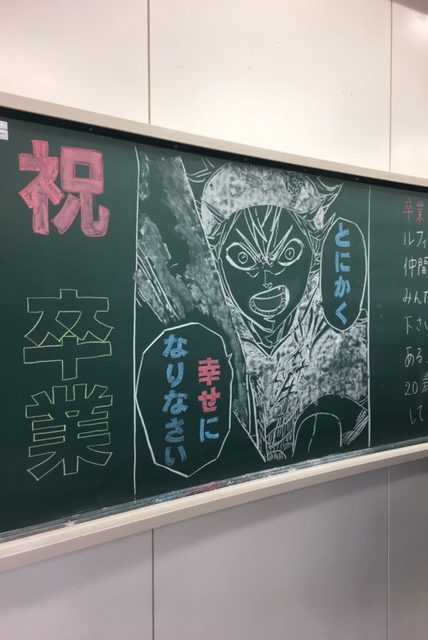 祝 卒業
とにかく
幸せに
なりなさい
卒業
ルフィ
仲間
みんな
下さい
ある
20歳
して